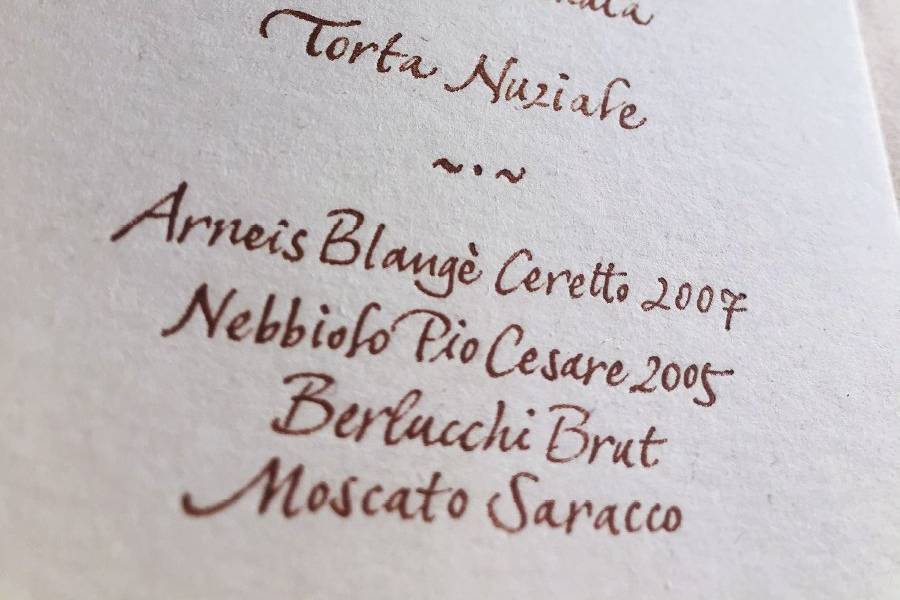 Torta Nuziale
~·~
Arneis Blangè Ceretto 2007
Nebbiolo Pio Cesare 2005
Berlucchi Brut
Moscato Saracco